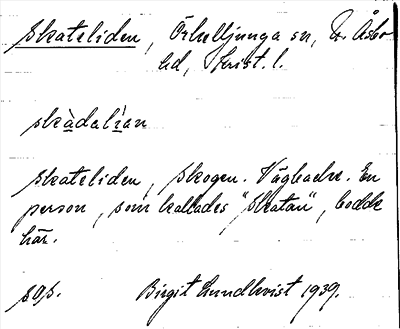 Skateliden, Örkelljunga sn, N. Åsbo
hd, Krist. l.
skàdalìan
Skateliden, skogen. Vägbacke. En
person, som kallades "Skatan", bodde
här.
sØs. Birgit Lundkvist 1939.